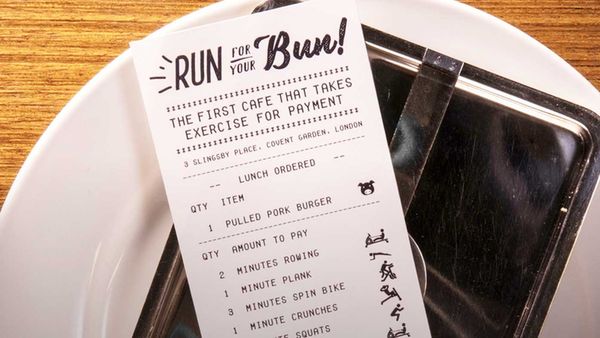 RUN FOR YOUR Bun!
THE FIRST CAFE THAT TAKES
EXERCISE FOR PAYMENT
3 SLINGSBY PLACE, COVENT GARDEN, LONDON
-- LUNCH ORDERED --
QTY ITEM
1 PULLED PORK BURGER
QTY AMOUNT TO PAY
2 MINUTES ROWING
1 MINUTE PLANK
3 MINUTES SPIN BIKE
1 MINUTE CRUNCHES
MINUTE SQUATS